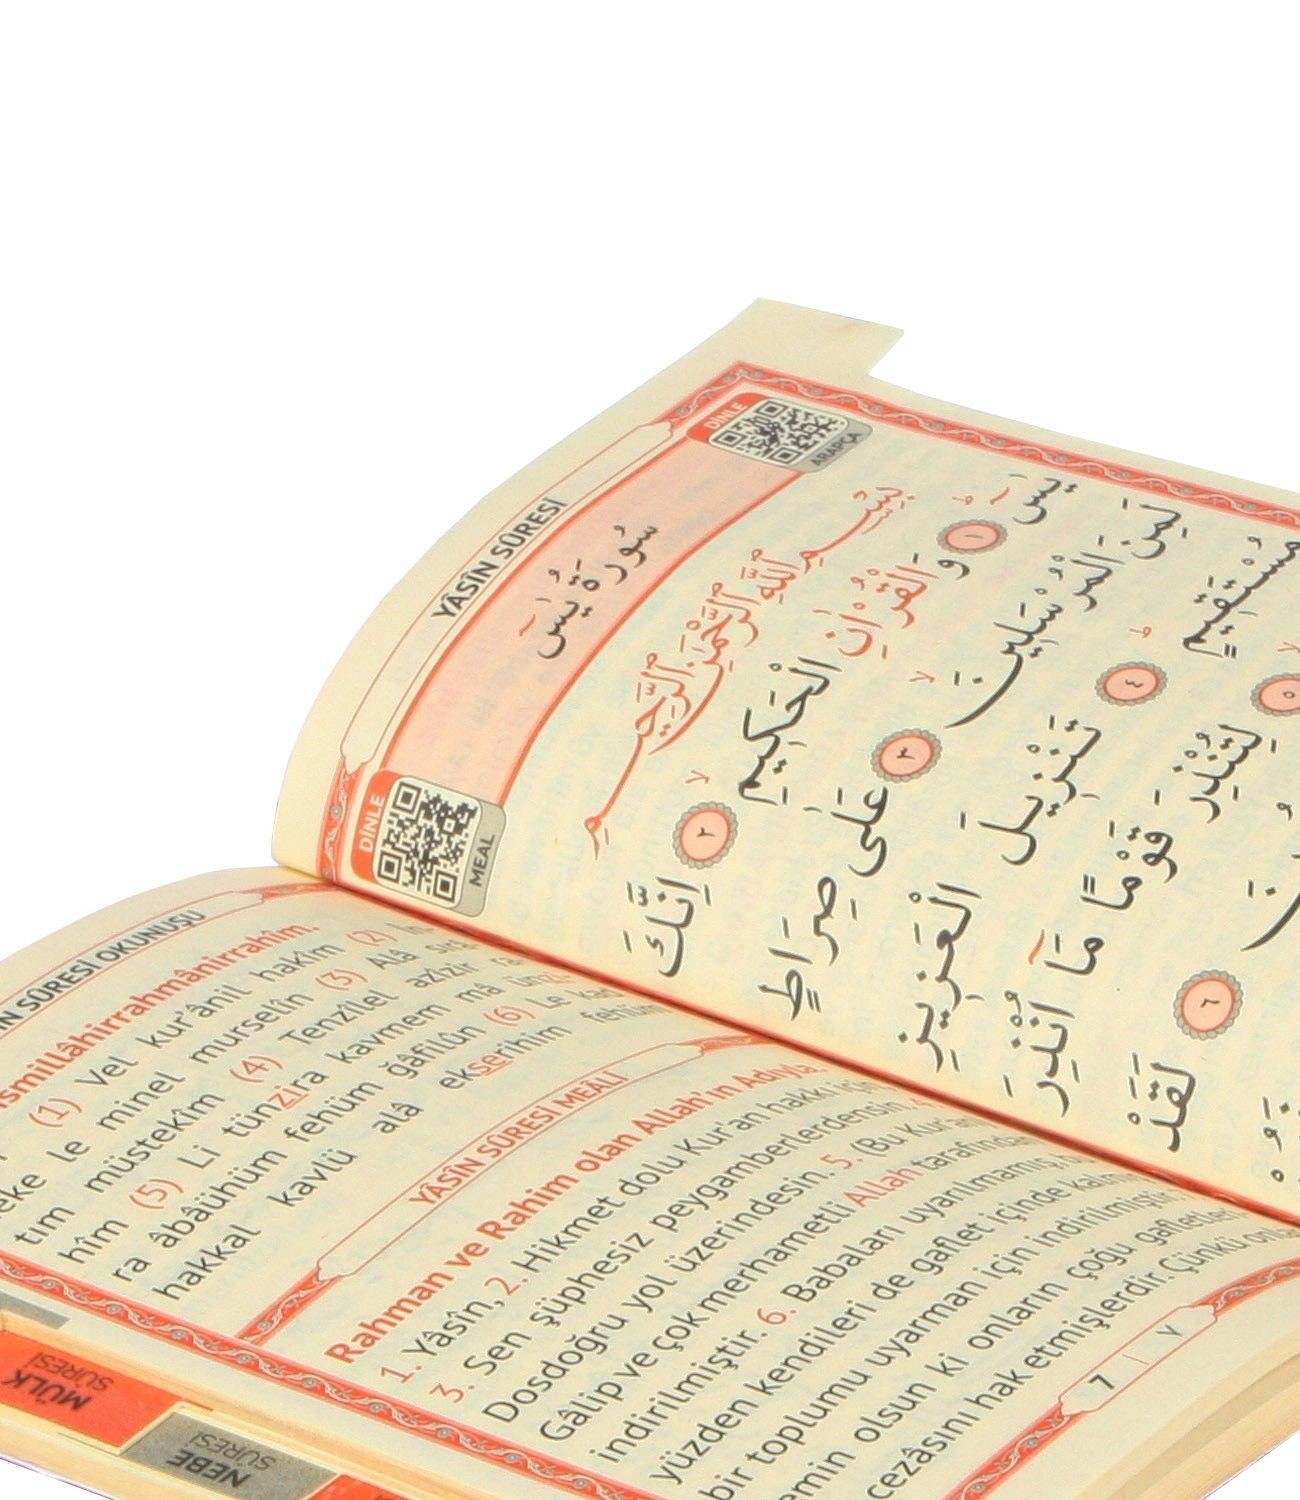 YÂSÎN SÛRESİ
DİNLE
ARAPÇA
سُورَةُ يٰسٓ
DİNLE
MEAL
بِسْمِ اللّٰهِ الرَّحْمٰنِ الرَّحِيمِ
يٰسٓ ﴿١﴾ وَالْقُرْاٰنِ الْحَكِيمِ ﴿٢﴾ اِنَّكَ
لَمِنَ الْمُرْسَلِينَ ﴿٣﴾ عَلٰى صِرَاطٍ
مُسْتَقِيمٍ ﴿٤﴾ تَنْزِيلَ الْعَزِيزِ
﴿٥﴾ لِتُنْذِرَ قَوْمًا مَٓا اُنْذِرَ
﴿٦﴾ لَقَدْ
SÛRESİ OKUNUŞU
(1) Vel kur'ânil hakîm (2)
le minel murselîn (3) Alâ
tim müstekîm (4) Tenzîlel azîzir
hîm (5) Li tünzira kavmem mâ
ra âbâühüm fehüm ğâfilûn (6) Le
hakkal kavlü alâ ekserihim fehüm
YÂSÎN SÛRESİ MEÂLİ
Rahman ve Rahim olan Allah'ın Adıyla.
1. Yâsîn, 2. Hikmet dolu Kur'an hakkı için
3. Sen şüphesiz peygamberlerdensin.
Dosdoğru yol üzerindesin. 5. (Bu Kur'an
Gâlip ve çok merhametli Allah tarafından
indirilmiştir. 6. Babaları uyarılmamış,
yüzden kendileri de gaflet içinde
bir toplumu uyarman için indirilmiştir.
olsun ki onların çoğu gafletleri
cezâsını hak etmişlerdir. Çünkü
7 | ٧
MÜLK
SÛRESİ
NEBE
SÛRESİ